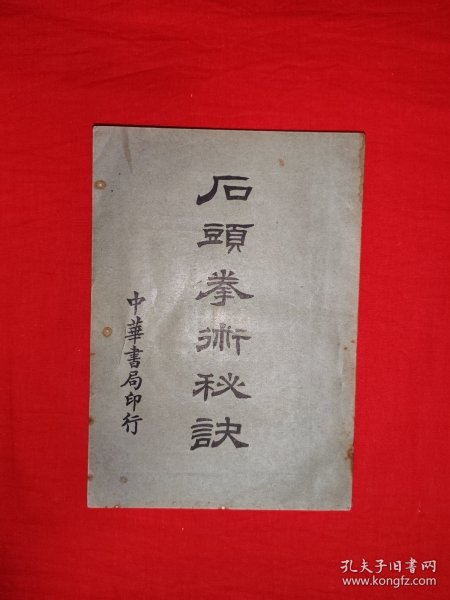 石頭拳術秘訣
中華書局印行
孔夫子旧书网
www.kongfz.com